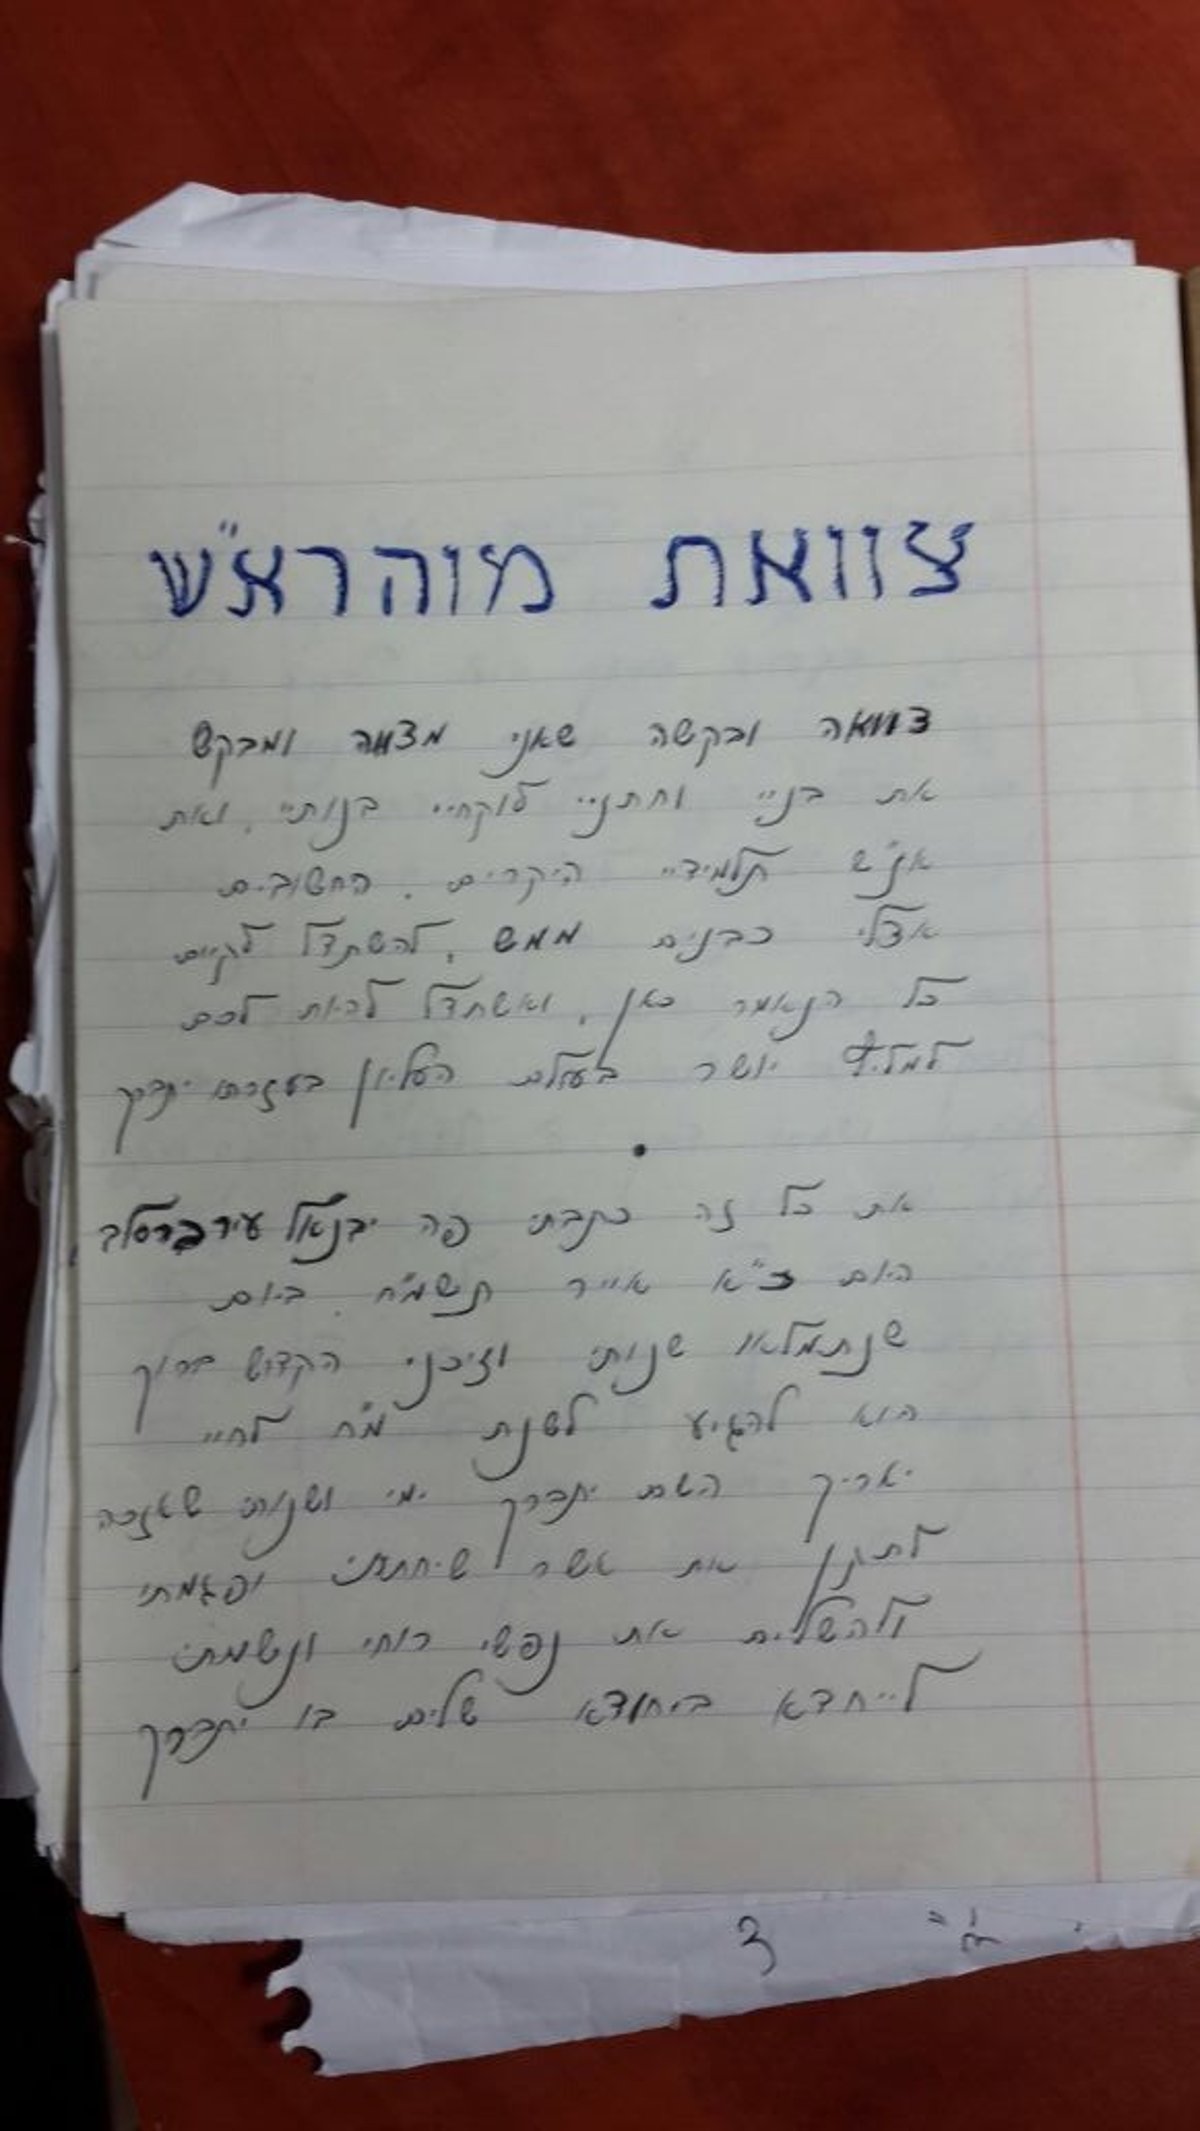 צוואת מוהרא"ש
צוואה ובקשה שאני מצווה ומבקש
את בניי וחתניי לוקחיי בנותיי, ואת
אנ"ש תלמידיי היקרים, החשובים
אצלי כבנים ממש, להשתדל לקיים
כל הנאמר כאן, ואשתדל להיות לכם
למליץ יושר בעולם העליון בעזרתו יתברך
את כל זה כתבתי פה יבנאל עיר ברסלב
היום כ"א אייר תשמ"ח, ביום
שנתמלאו שנותי וזיכני הקדוש ברוך
הוא להגיע לשנת מ"ח לחיי
יאריך השם יתברך ימי ושנותי שאזכה
לתקן את אשר שיחתתי ופגמתי
ולהשלים את נפשי רוחי ונשמתי
לייחדא ביחודא שלים בו יתברך